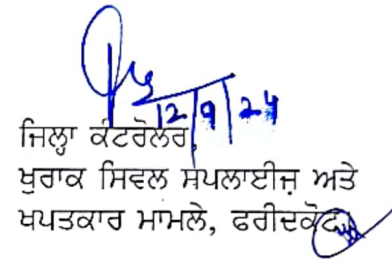 12/9/24
ਜਿਲ੍ਹਾ ਕੰਟਰੋਲਰ,
ਖੁਰਾਕ ਸਿਵਲ ਸਪਲਾਈਜ਼ ਅਤੇ
ਖਪਤਕਾਰ ਮਾਮਲੇ, ਫਰੀਦਕੋਟ